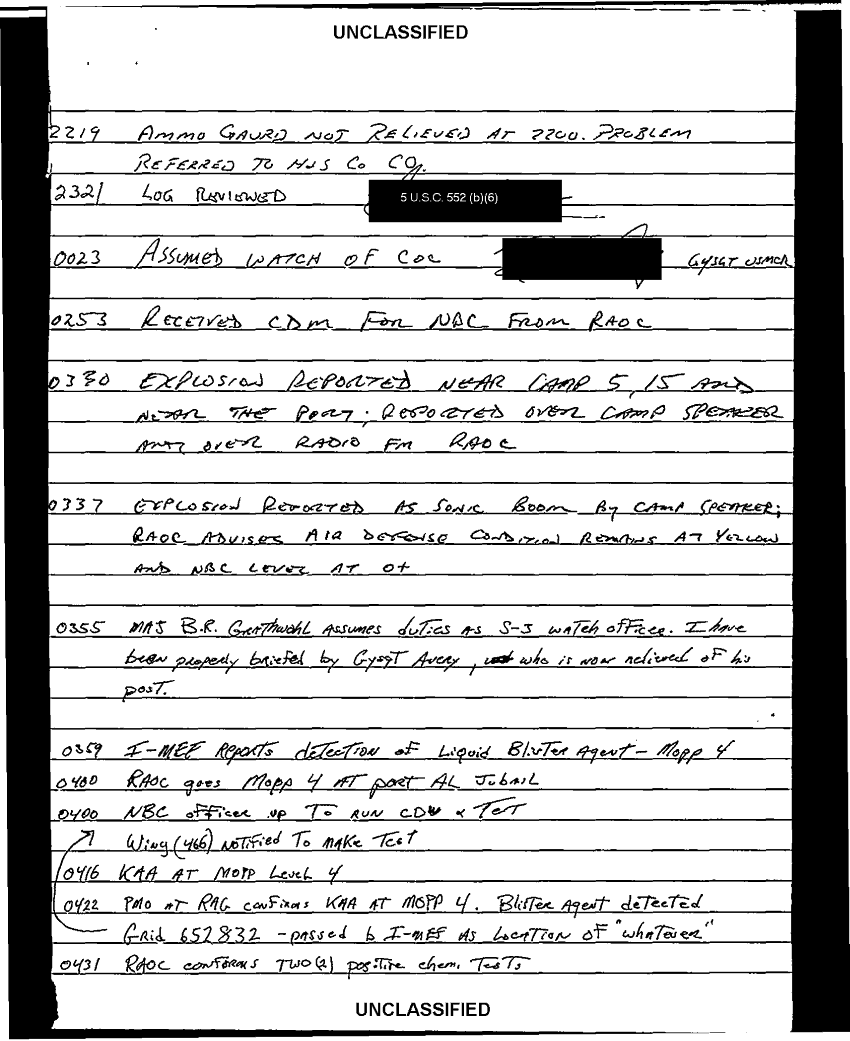 UNCLASSIFIED
2219 AMMO GAURD NOT RELIEVED AT 2200. PROBLEM
REFERRED TO H&S CO CO.
2321 LOG REVIEWED 5 U.S.C. 552 (b)(6)
0023 ASSUMED WATCH OF COC GYSGT USMCR
0253 RECEIVED CDM FOR NBC FROM RAOC
0330 EXPLOSION REPORTED NEAR CAMP 5, 15 AND
NEAR THE PORT; REPORTED OVER CAMP SPEAKER
AND OVER RADIO FM RAOC
0337 EXPLOSION REPORTED AS SONIC BOOM BY CAMP SPEAKER;
RAOC ADVISES AIR DEFENSE CONDITION REMAINS AT YELLOW
AND NBC LEVEL AT 0+
0355 MAJ B.R. GRATHWOHL ASSUMES duties AS S-3 WATCH officer. I have
been properly briefed by GySgT Avery, who is now relieved of his
post.
0359 I-MEF Reports detection of Liquid Blister Agent - Mopp 4
0400 RAOC goes Mopp 4 AT port AL Jubail
0400 NBC officer up To RUN CDM & TeT
Wing (466) NOTIFIED To MAKE Test
0416 KAA AT MOPP Level 4
0422 PMO AT RAG confirms KAA AT MOPP 4. Blister Agent detected
Grid 652832 - passed b I-MEF AS Location OF "whatever"
0431 RAOC conforms TWO (2) positive chem. Tests
UNCLASSIFIED